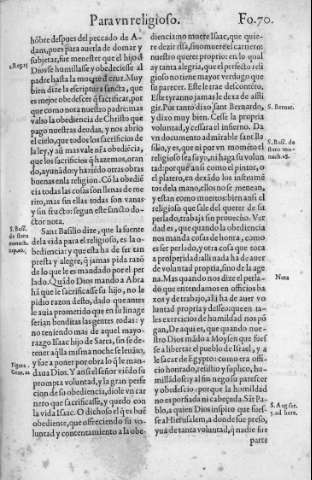 Para vn religioso. Fo.70.
hõbre despues del peccado de A-
dam, pues para auerla de domar y
subjetar, fue menester que el hijo d̃
Dios se humillasse y obedeciesse al
padre hasta la muerte d̃ cruz. Muy
bien dize la escriptura sancta, que
es mejor obedescer q̃ sacrificar, por
que como nota nuestro padre: mas
valio la obediencia de Christo que
pago nuestras deudas, y nos abrio
el cielo, que todos los sacrificios de
la ley, aũ mas vale nr̃a obediẽcia,
que los sacrificios q̃ hazemos, oran
do, ayunãdo y haziẽdo otras obras
buenas en la religion. Cõ la obediẽ
cia todas las cosas son llenas de me
rito, mas sin ellas todas son vanas
y sin fructo: segun este sancto do-
ctor nota.
Sant Basilio dize, que la fuente
dela vida para el religioso, es la o-
bediencia: y que esta ha de ser tan
presta y alegre, q̃ jamas pida razõ
de lo que le es mandado por el per
lado. Quãdo Dios mando a Abra
hã que le sacrificasse su hijo, no le
pidio razon desto, dado que antes
le auia prometido que en su linage
serian benditas las gentes todas: y
no teniendo mas de aquel mayo-
razgo Isaac hijo de Sarra, sin se de-
tener aq̃lla misma noche se leuãto,
y fue a poner por obra lo q̃ le man-
daua Dios. Y ansi el señor viẽdo su
prompta voluntad, y la gran perfe
cion de su obediẽcia, diole vn car
nero que sacrificasse, y quedo con
la vida Isaac. O dichoso el q̃ es buẽ
obediente, que offreciendo su vo-
luntad y contentamiento a la obe-
1.Reg.15
S. Basi.
de stitu
monach.
cap.10.
Figura.
Gene.22.
diencia no muere Isaac, que quie-
re dezir risa, sino muere el carnero:
nuestro querer proprio: en lo qual
ay tanta alegria, que el perfecto reli
gioso no tiene mayor verdugo que
su parecer. Este le trae descontẽto,
Este tyranno jamas le dexa de asli
gir. Por tanto dixo sant Bernardo,
y dixo muy bien. Cesse la propria
voluntad, y cessara el infierno. Da
vn documento admirable sant Ba
silio, y es, que ni por vn momẽto el
religioso sea suyo, ni haga su volun
tad: porque ansi como el pintor, o
el platero, en dexãdo los instrumẽ
tos dela mano, ellos no se menean,
y estan como muertos: bien ansi el
religioso que sale del querer de su
perlado, trabaja sin prouecho. Ver
dad es, que quando la obediencia
nos manda cosas de honra, como
es ser perlado, y otra cosa que nota
a prosperidad: alli nada ha de auer
de voluntad propria, sino de la age
na. Mas quando nos dize el perla-
dõ que entendamos en officios ba
xos y de trabajo, alli ha de auer vo
luntad propria y desseo: que en ta-
les exercicios de humildad nos põ
gan. De aqui es, que quando nue-
stro Dios mãdo a Moysen que fues
se a libertar el pueblo de Israel, y a
le sacar de Egypto: como era offi-
cio honrado, resistio y suplico, hu-
millãdose: y al fin no egoa parescer
y obedescio: porque la humildad
no es porfiada ni cabeçuda. Sãt Pa-
blo, a quien Dios inspiro que fues-
se a Hierusalem, a donde fue preso,
yua de tanta voluntad, q̃ nadie fue
parte
S. Bernar.
S. Basi. de
stitu mo-
nach. c.6.
Nota
S. Augus.